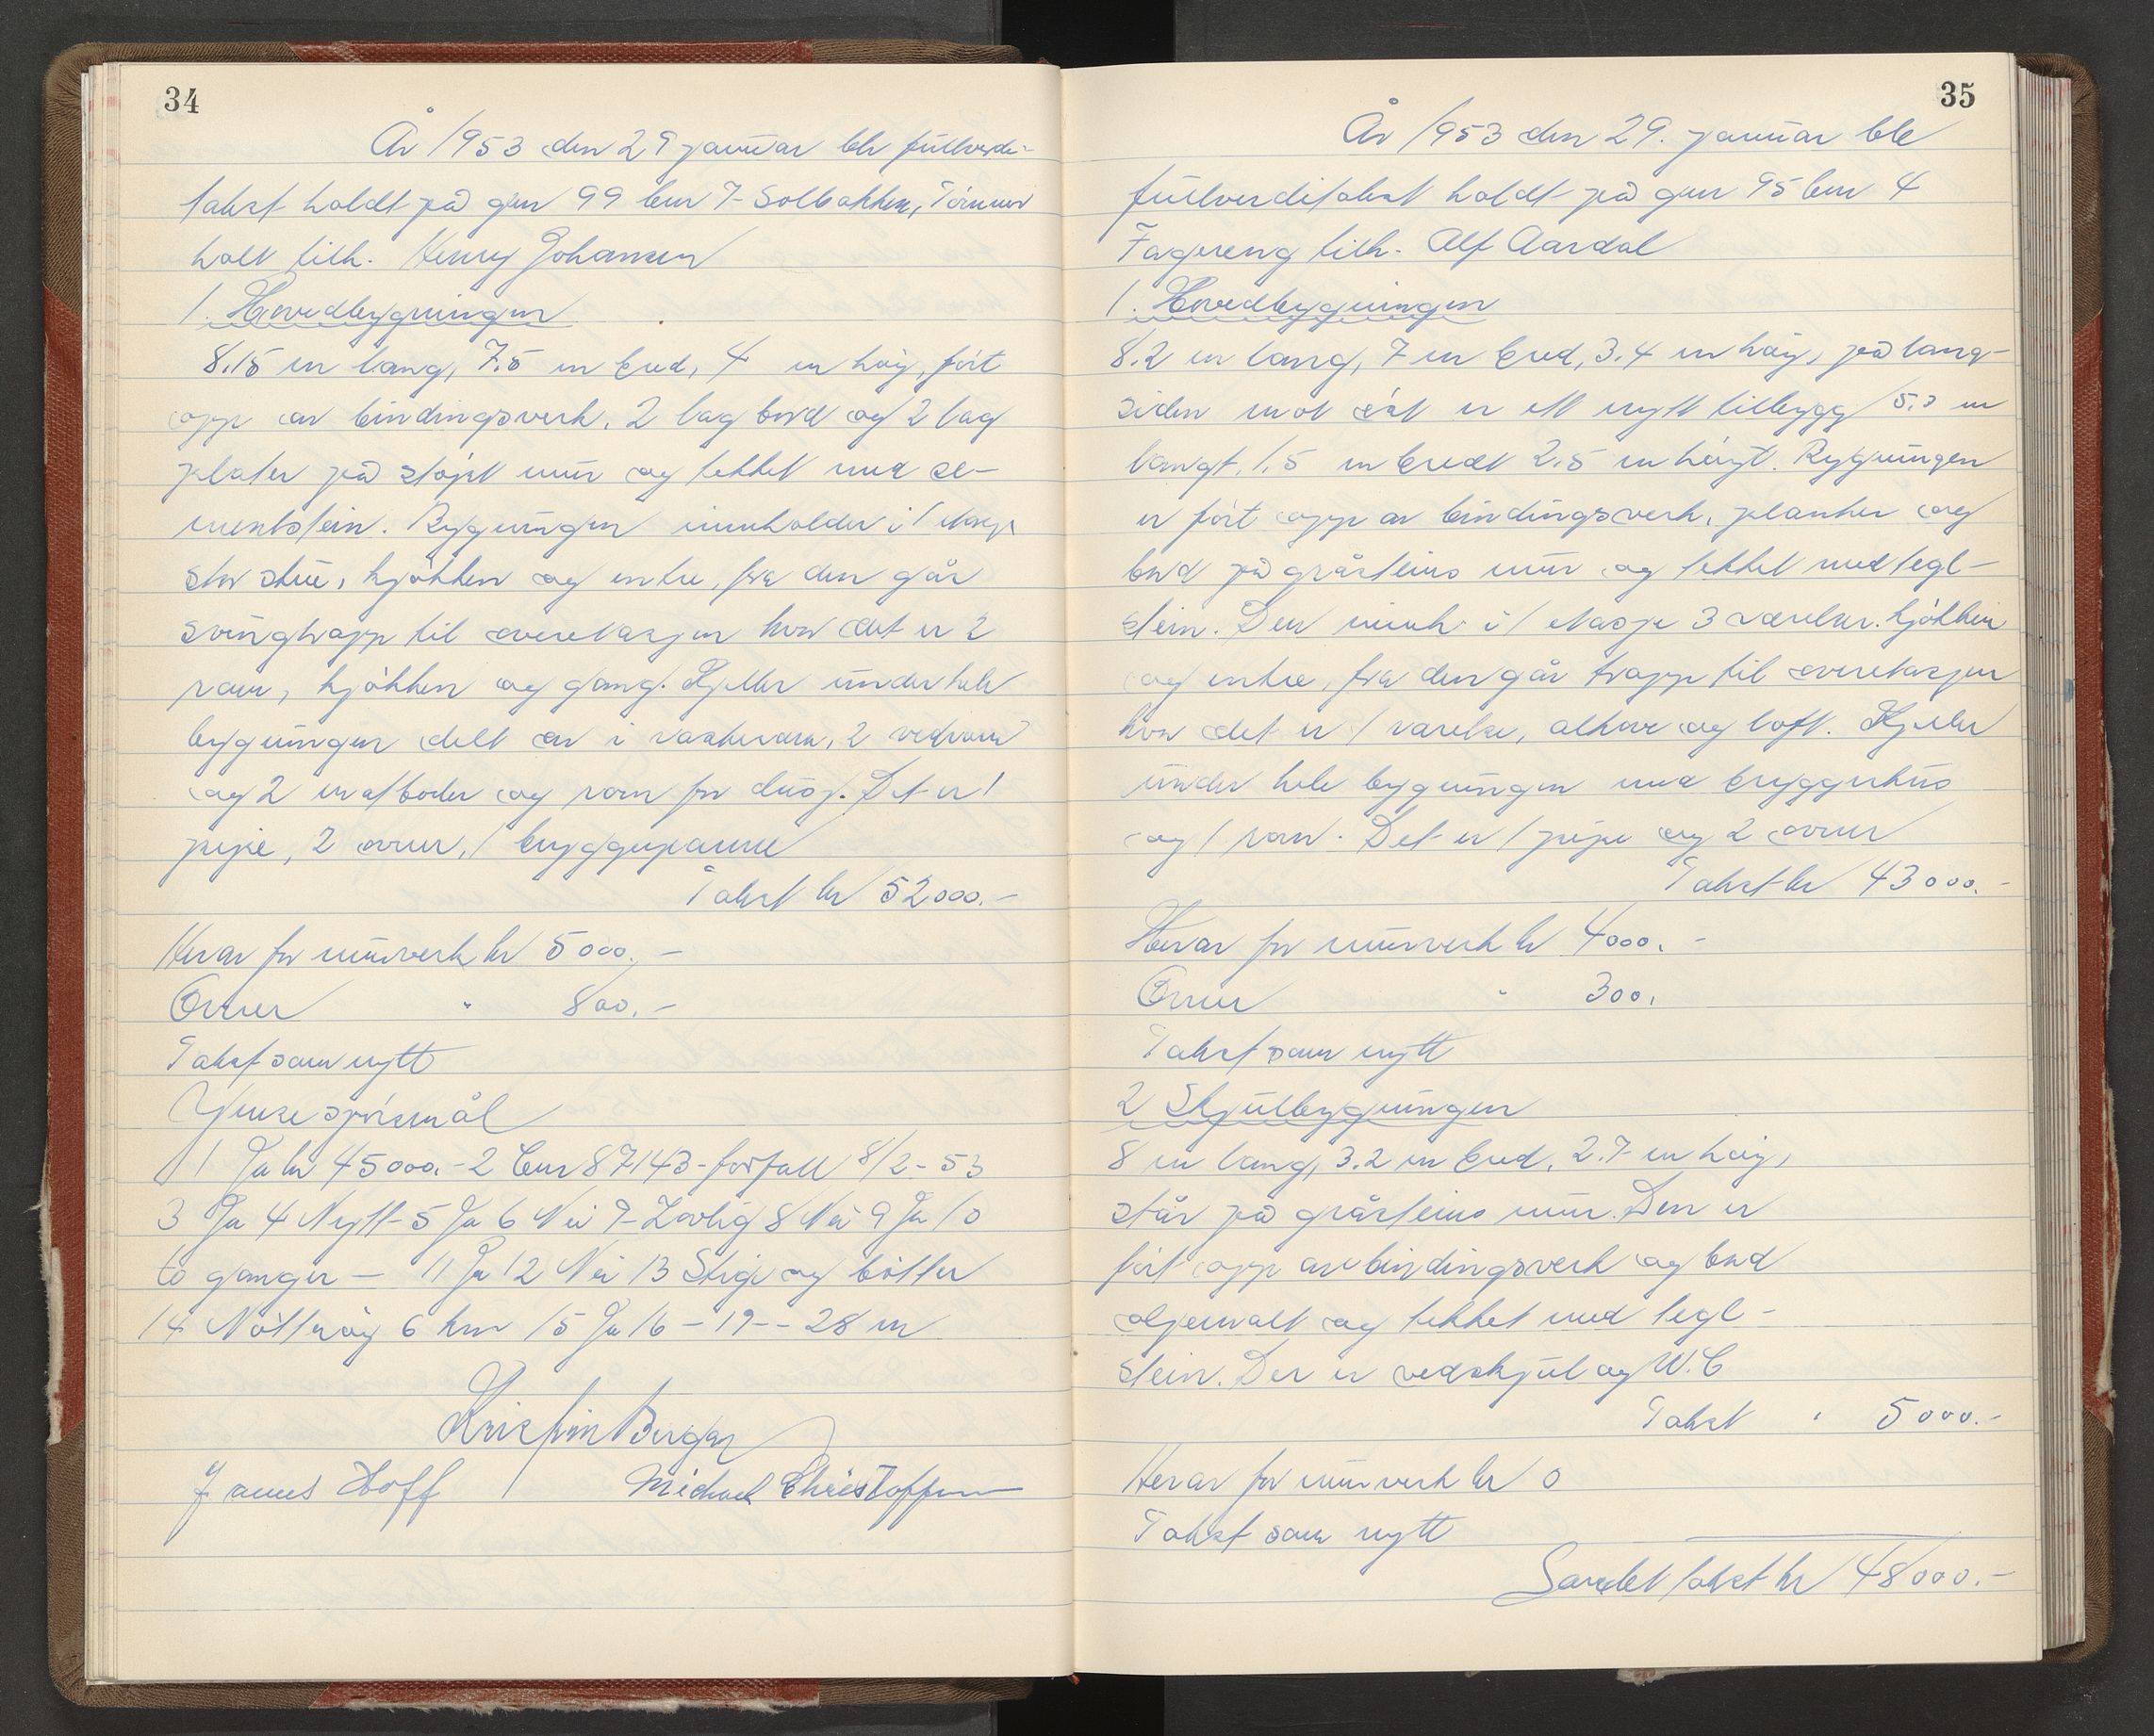 34
År 1953 den 29 januar ble fullverdi-
takst holdt på gnr 99 bnr 7 Solbakken, Tömmer
holt tilh. Henry Johansen
1. Hovedbygningen
8.15 m lang, 7.5 m bred, 4 m høy, ført
opp av bindingsverk, 2 lag bord og 2 lag
plater på støpt mur og tekket med se-
mentstein. Bygningen inneholder i 1 etasje
stor stue, kjøkken og entre, fra den går
svingtrapp til overetasjen hvor det er 2
rom, kjøkken og gang. Kjeller under hele
bygningen delt av i vaskerom, 2 vedrom
og 2 matboder og rom for dusj. Det er 1
pipe, 2 ovner, 1 bryggepanne
Takst kr 52000.-
Herav for murverk kr 5000.-
Ovner " 800.-
Takst som nytt
Ymse spörsmål
1 Ja kr 45000.- 2 Bnr 87143 - forfall 8/2-53
3 Ja 4 Nytt - 5 Ja 6 Nei 7 Lovlig 8 Nei 9 Ja 10
to ganger - 11 Ja 12 Nei 13 Stige og bötter
14 Nötteröy 6 km 15 Ja 16 - 19 -- 28 m
Kristian Berg
James Hoff Michael Christoffersen
35
År 1953 den 29. januar ble
fullverditakst holdt på gnr 95 bnr 4
Fagereng tilh. Alf Aardal
1. Hovedbygningen
8.2 m lang, 7 m bred, 3.4 m høy, på lang-
siden mot öst er ett nytt tilbygg 5.3 m
langt, 1.5 m bredt 2.5 m høyt. Bygningen
er ført opp av bindingsverk, planker og
bord på gråsteins mur og tekket med tegl-
stein. Den innh. i 1 etasje 3 værelser, kjøkken
og entre, fra den går trapp til overetasjen
hvor det er 1 værelse, alkove og loft. Kjeller
under hele bygningen med bryggerhus
og 1 rom. Det er 1 pipe og 2 ovner
Takst kr 43000.-
Herav for murverk kr 4000.-
Ovner " 300.
Takst som nytt
2 Skjulbygningen
8 m lang, 3.2 m bred, 2.7 m høy,
står på gråsteins mur. Den er
ført opp av bindingsverk og bord
oljemalt og tekket med tegl-
stein. Der er vedskjul og W.C
Takst " 5000.-
Herav for murverk kr 0
Takst som nytt
Samlet takst kr 48000.-